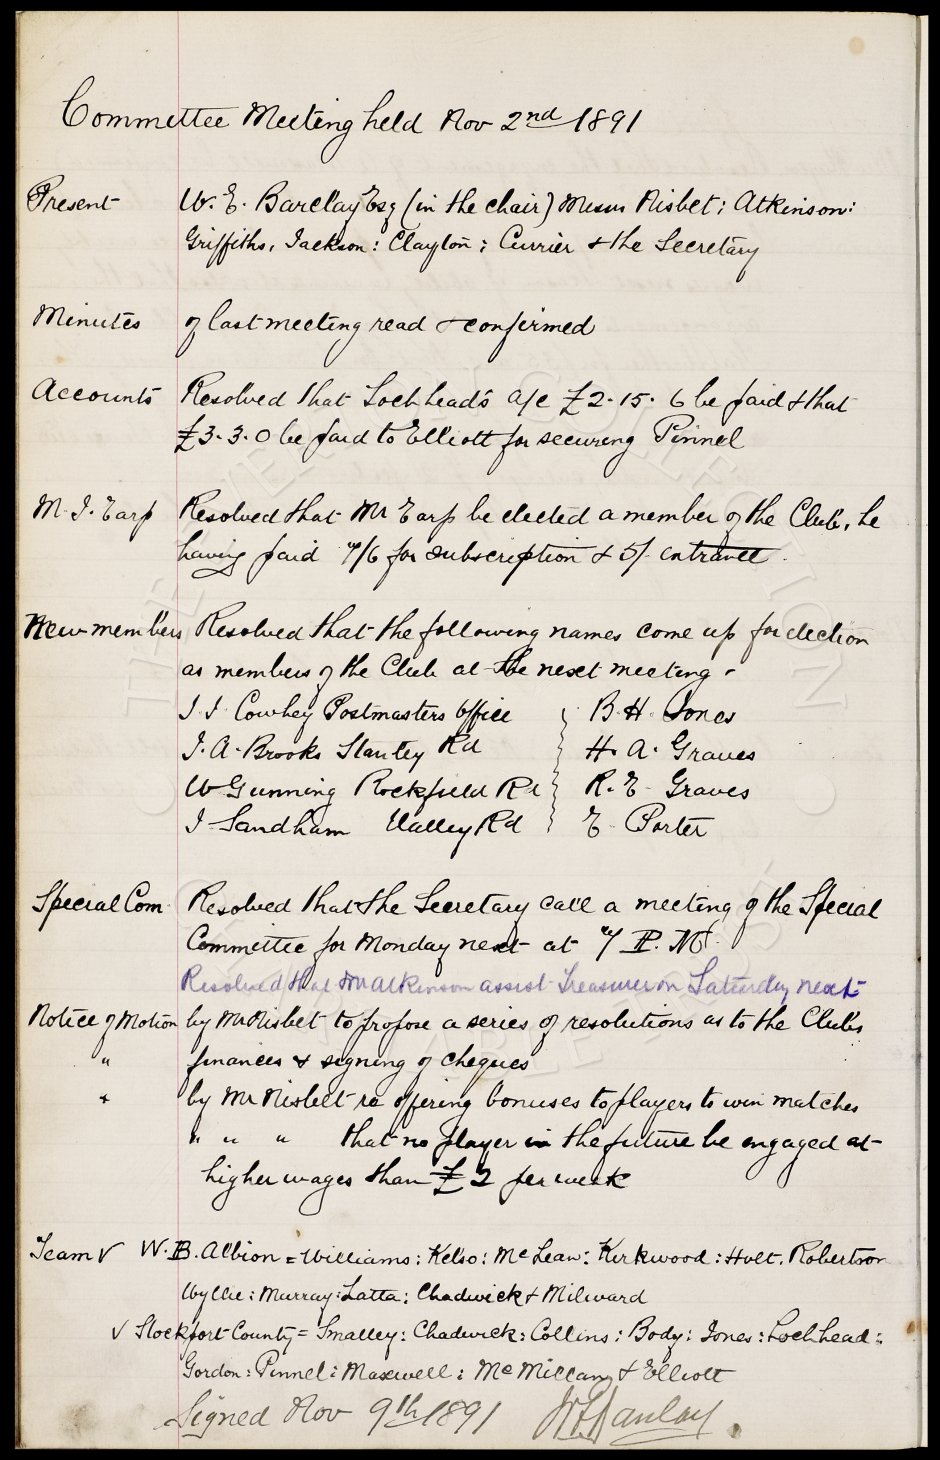 Committee Meeting held Nov 2nd 1891
Present W. E. Barclay Esq (in the chair) Messrs Nisbet; Atkinson:
Griffiths, Jackson: Clayton: Currier & the Secretary
Minutes of last meeting read & confirmed
Accounts Resolved that Lochhead's a/c £2.15.6 be paid & that
£3.3.0 be paid to Elliott for securing Pinnel
M. J. Earp Resolved that Mr Earp be elected a member of the Club, he
having paid 7/6 for subscription & 5/- entrance.
New members Resolved that the following names come up for election
as members of the Club at the next meeting -
J. J. Cowhey Postmasters Office } B. H. Jones
J. A. Brooks Stanley Rd } H. A. Graves
W Gunning Rockfield Rd } R. E. Graves
J. Sandham Walley Rd } E. Porter
Special Com. Resolved that the Secretary call a meeting of the Special
Committee for Monday next at 7 P.M.
Resolved that Mr Atkinson assist Treasurer on Saturday next
Notice of Motion by Mr Nisbet to propose a series of resolutions as to the Club's
" finances & signing of cheques
+ by Mr Nisbet re offering bonuses to players to win matches
" " " that no player in the future be engaged at
higher wages than £2 per week
Team V W.B. Albion = Williams: Kelso: McLean: Kirkwood: Holt. Robertson
Wyllie: Murray: Latta: Chadwick & Milward
V Stockport County = Smalley: Chadwick: Collins: Body: Jones: Lochhead:
Gordon: Pinnel: Maxwell: McMillan & Elliott
Signed Nov 9th 1891 W E Barclay.